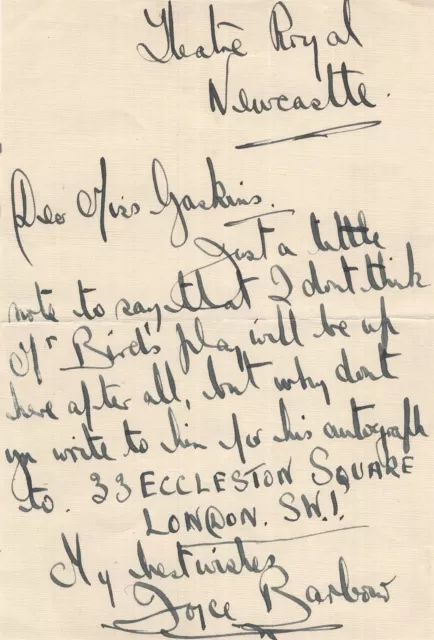 Theatre Royal
Newcastle.
Dear Miss Gaskins.
Just a little
note to say that I dont think
Mr Bird's play will be up
here after all, but why dont
you write to him for his autograph
to. 33 ECCLESTON SQUARE
LONDON. SW.1.
My best wishes
Joyce Barbour